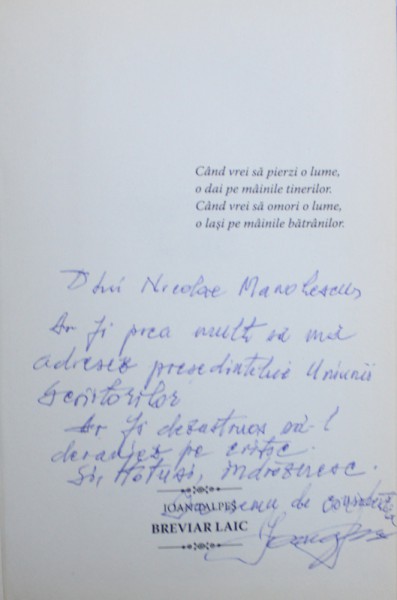 Când vrei să pierzi o lume,
o dai pe mâinile tinerilor.
Când vrei să omori o lume,
o lași pe mâinile bătrânilor.
Dlui Nicolae Manolescu
Ar fi prea mult să mă
adresez președintelui Uniunii
Scriitorilor
Ar fi dezastruos să-l
deranjez pe critic.
Și, totuși, îndrăznesc.
În semn de
IOAN ALPEȘ
BREVIAR LAIC